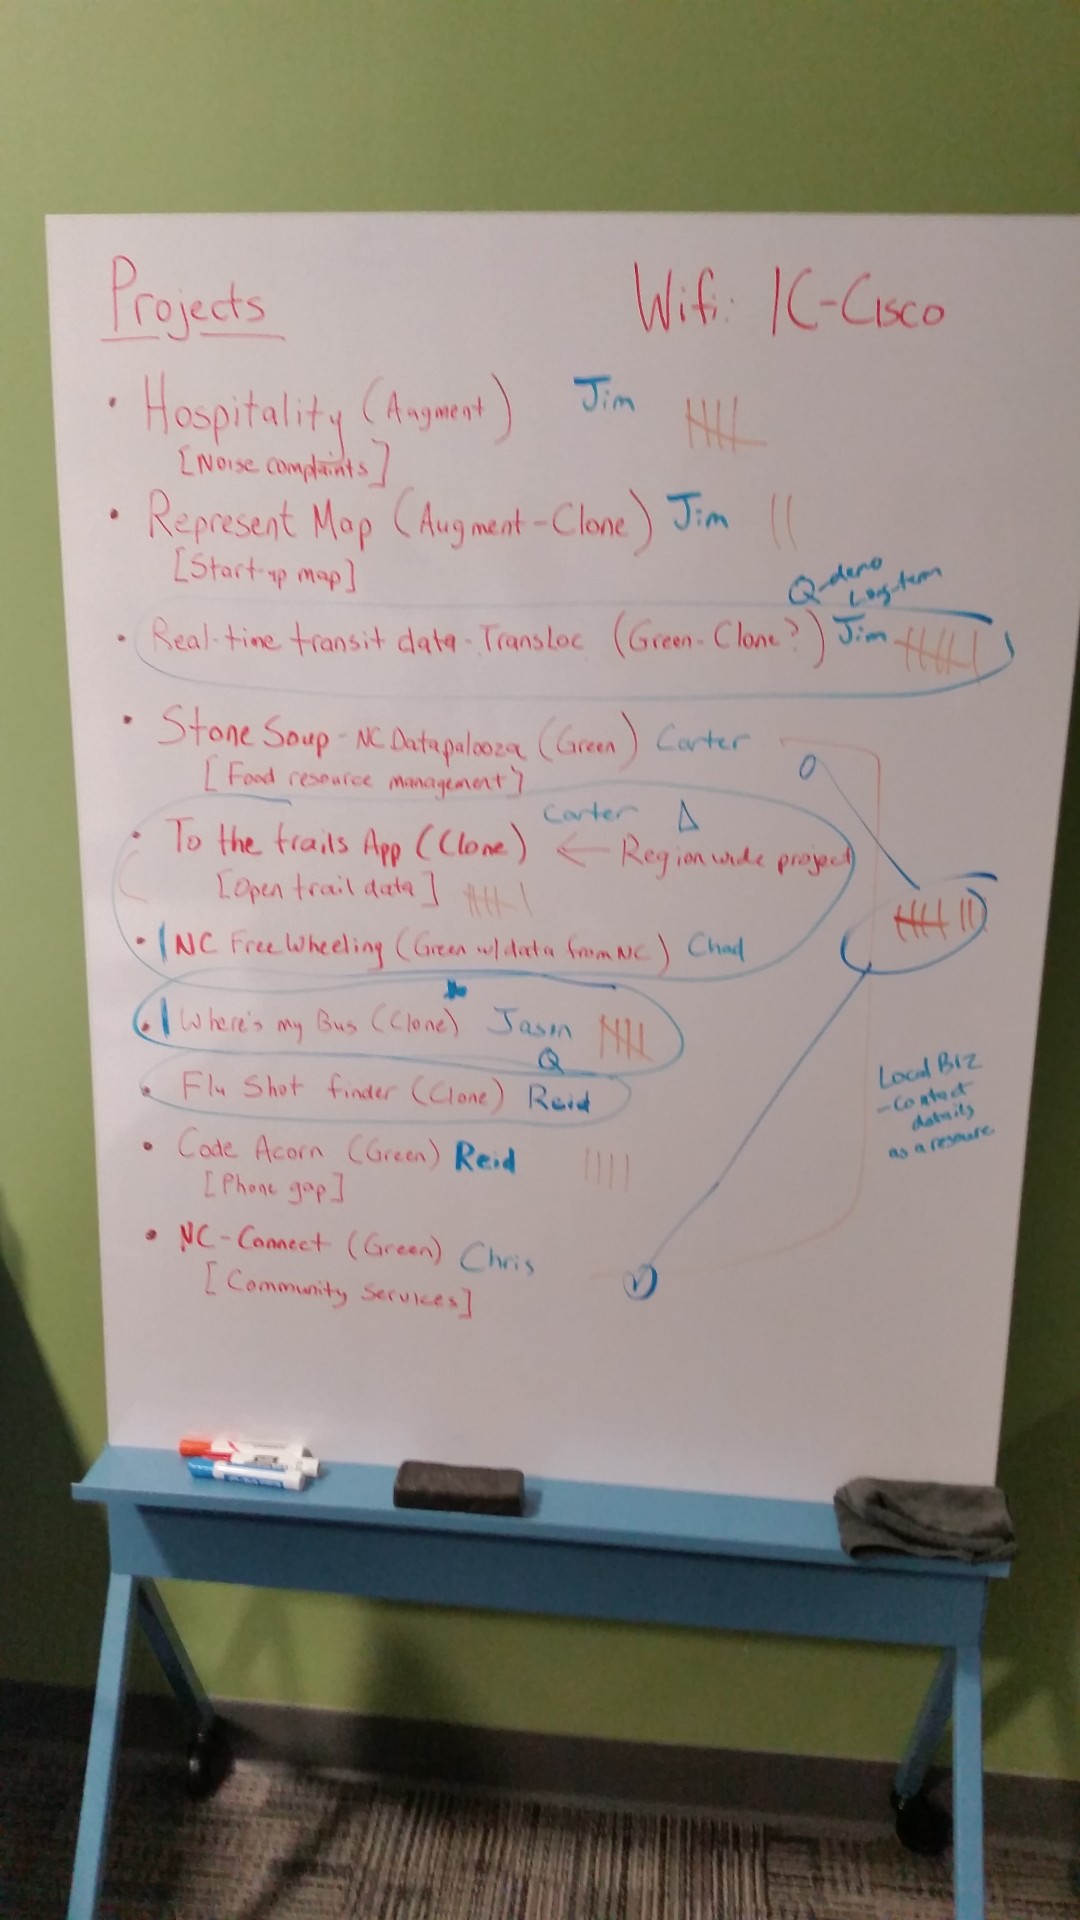 Projects
Wifi: IC-Cisco
• Hospitality (Augment) Jim
[Noise complaints]
• Represent Map (Augment-Clone) Jim
[Start-up map]
Q-demo
Long-term
• Real-time transit data - Transloc (Green-Clone?) Jim
• Stone Soup - NC Datapalooza (Green) Carter
[Food resource management]
Carter Δ
• To the trails App (Clone) ← Region wide project
[Open trail data]
• NC Free Wheeling (Green w/data from NC) Chad
• Where's my Bus (Clone) Jason
Q
• Flu Shot finder (Clone) Reid
Local Biz
- Contact
details
as a resource
• Code Acorn (Green) Reid
[Phone gap]
• NC-Connect (Green) Chris
[Community Services]